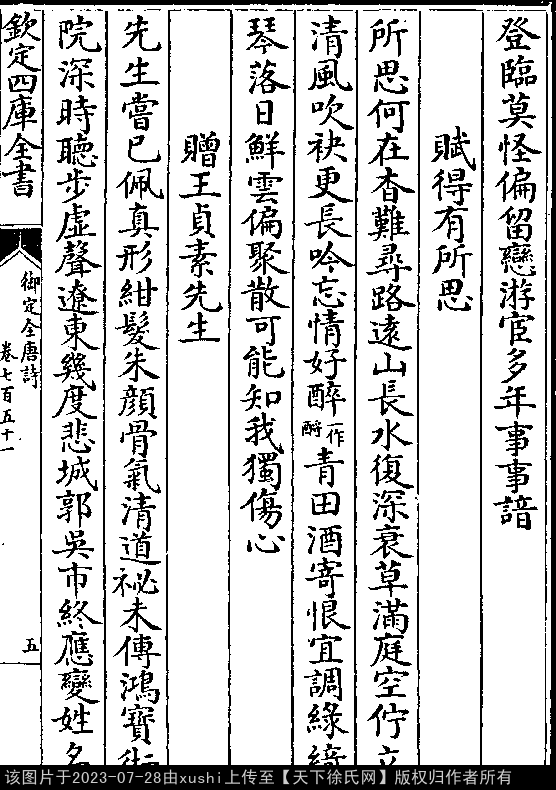 登臨莫怪偏留戀游宦多年事事諳
賦得有所思
所思何在杳難尋路遠山長水復深衰草滿庭空佇立
清風吹袂更長吟忘情好醉一作酹青田酒寄恨宜調綠綺
琴落日鮮雲偏聚散可能知我獨傷心
贈王貞素先生
先生嘗已佩真形紺髮朱顔骨氣清道祕未傳鴻寶術
院深時聽步虛聲遼東幾度悲城郭吳市終應變姓名
欽定四庫全書
御定全唐詩
卷七百五十一
五
该图片于2023-07-28由xushi上传至【天下徐氏网】版权归作者所有